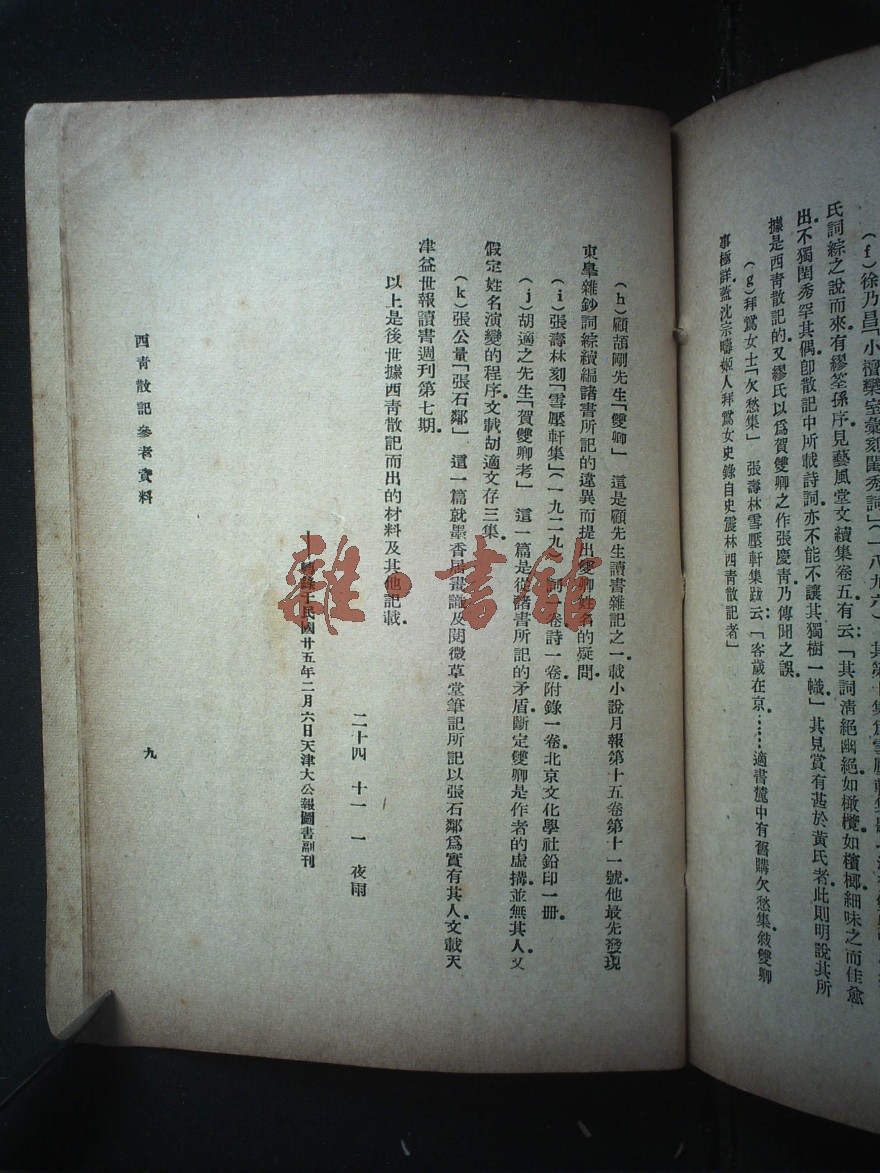 (f)徐乃昌「小檀欒室彙刻閨秀詞」(一八九六)
氏詞綜之說而來有繆筌孫序見藝風堂文續集卷五有云:「其詞清絕幽絕如橄欖如檳榔細味之而佳愈
出不獨閨秀罕其偶卽散記中所載詩詞亦不能不讓其獨樹一幟」其見賞有甚於黃氏者此則明說其所
據是西靑散記的又繆氏以爲賀雙卿之作張慶靑乃傳聞之誤
(g)拜鴛女士「欠愁集」 張壽林雪壓軒集跋云:「客歲在京……適書簏中有舊購欠愁集敍雙卿
事極詳蓋沈宗疇姬人拜鴛女史錄自史震林西靑散記者」
(h)顧頡剛先生「雙卿」 這是顧先生讀書雜記之一載小說月報第十五卷第十一號他最先發現
東皐雜鈔詞綜續編諸書所記的違異而提出雙卿姓名的疑問
(i)張壽林刻「雪壓軒集」(一九二九)詞一卷詩一卷附錄一卷北京文化學社鉛印一冊
(j)胡適之先生「賀雙卿考」 這一篇是從諸書所記的矛盾斷定雙卿是作者的虛搆並無其人又
假定姓名演變的程序文載胡適文存三集
(k)張公量「張石鄰」 這一篇就墨香居畫識及閱微草堂筆記所記以張石鄰爲實有其人文載天
津益世報讀書週刊第七期
以上是後世據西靑散記而出的材料及其他記載
二十四 十一 一 夜雨
錄于民國廿五年二月六日天津大公報圖書副刊
西靑散記參考資料
九
雜·書館